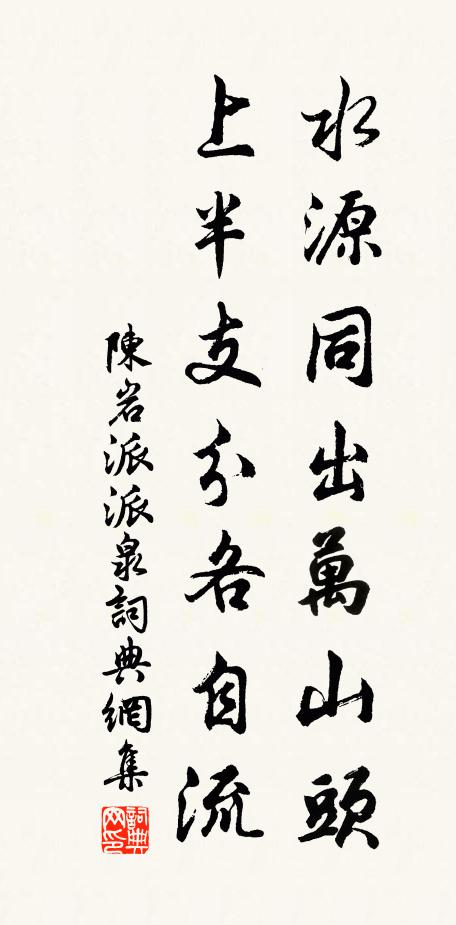 水源同出萬山頭
上半支分各自流
陳岩派派泉詞典網集
詞典
网印